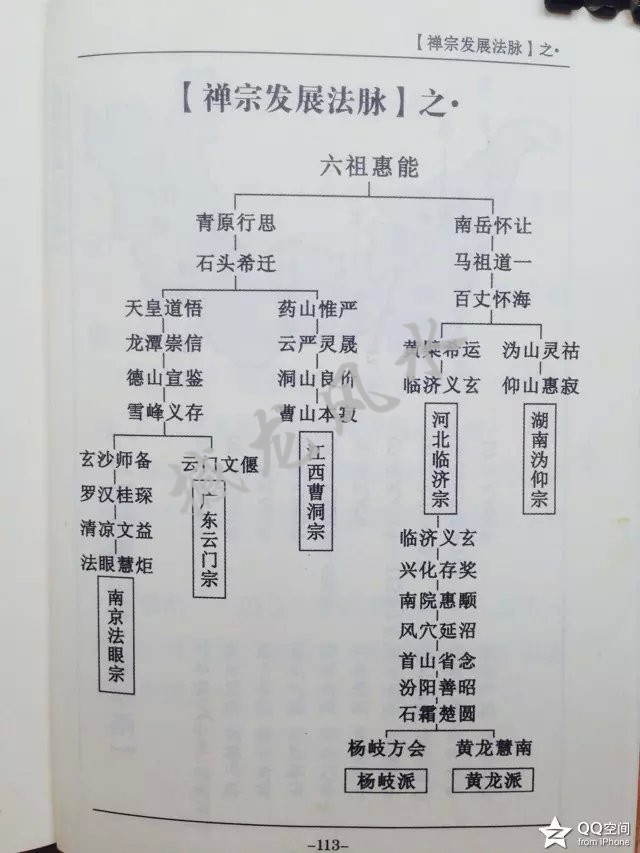 【禅宗发展法脉】之·
【禅宗发展法脉】之·
六祖惠能
青原行思 南岳怀让
石头希迁 马祖道一
百丈怀海
天皇道悟 药山惟严
龙潭崇信 云严灵晟 黄檗希运 沩山灵祜
德山宣鉴 洞山良价 临济义玄 仰山惠寂
雪峰义存 曹山本寂
江西曹洞宗 河北临济宗 湖南沩仰宗
玄沙师备 云门文偃
罗汉桂琛 广东云门宗
清凉文益 临济义玄
法眼慧炬 兴化存奖
南京法眼宗 南院惠颙
风穴延沼
首山省念
汾阳善昭
石霜楚圆
杨岐方会 黄龙慧南
杨岐派 黄龙派
-113-
QQ空间
from iPhone